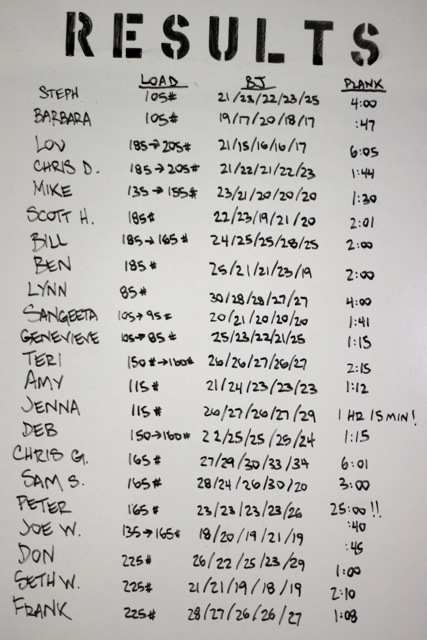 RESULTS
LOAD BJ PLANK
STEPH 105# 21/23/22/23/25 4:00
BARBARA 105# 19/17/20/18/17 :47
LOU 185→205# 21/15/16/16/17 6:05
CHRIS D. 185→205# 21/22/21/22/23 1:44
MIKE 135→155# 23/21/20/20/20 1:30
SCOTT H. 185# 22/23/19/21/20 2:01
BILL 185→165# 24/25/25/28/25 2:00
BEN 185# 25/21/21/23/19 2:00
LYNN 85# 30/28/28/27/27 4:00
SANGEETA 105→95# 20/21/20/20/20 1:41
GENEVIEVE 105→85# 25/23/22/21/25 1:15
TERI 150#→160# 26/26/27/26/27 2:15
AMY 115# 21/24/23/23/23 1:12
JENNA 115# 26/27/26/27/29 1 HR 15 MIN!
DEB 150→160# 22/25/25/25/24 1:15
CHRIS G. 165# 27/29/30/33/34 6:01
SAM S. 165# 28/24/26/30/20 3:00
PETER 165# 23/23/23/23/26 25:00!!
JOE W. 135→165# 18/20/19/21/19 :40
DON 225# 26/22/25/23/29 :45
SETH W. 225# 21/21/19/18/19 1:00
FRANK 225# 28/27/26/26/27 2:10
1:08